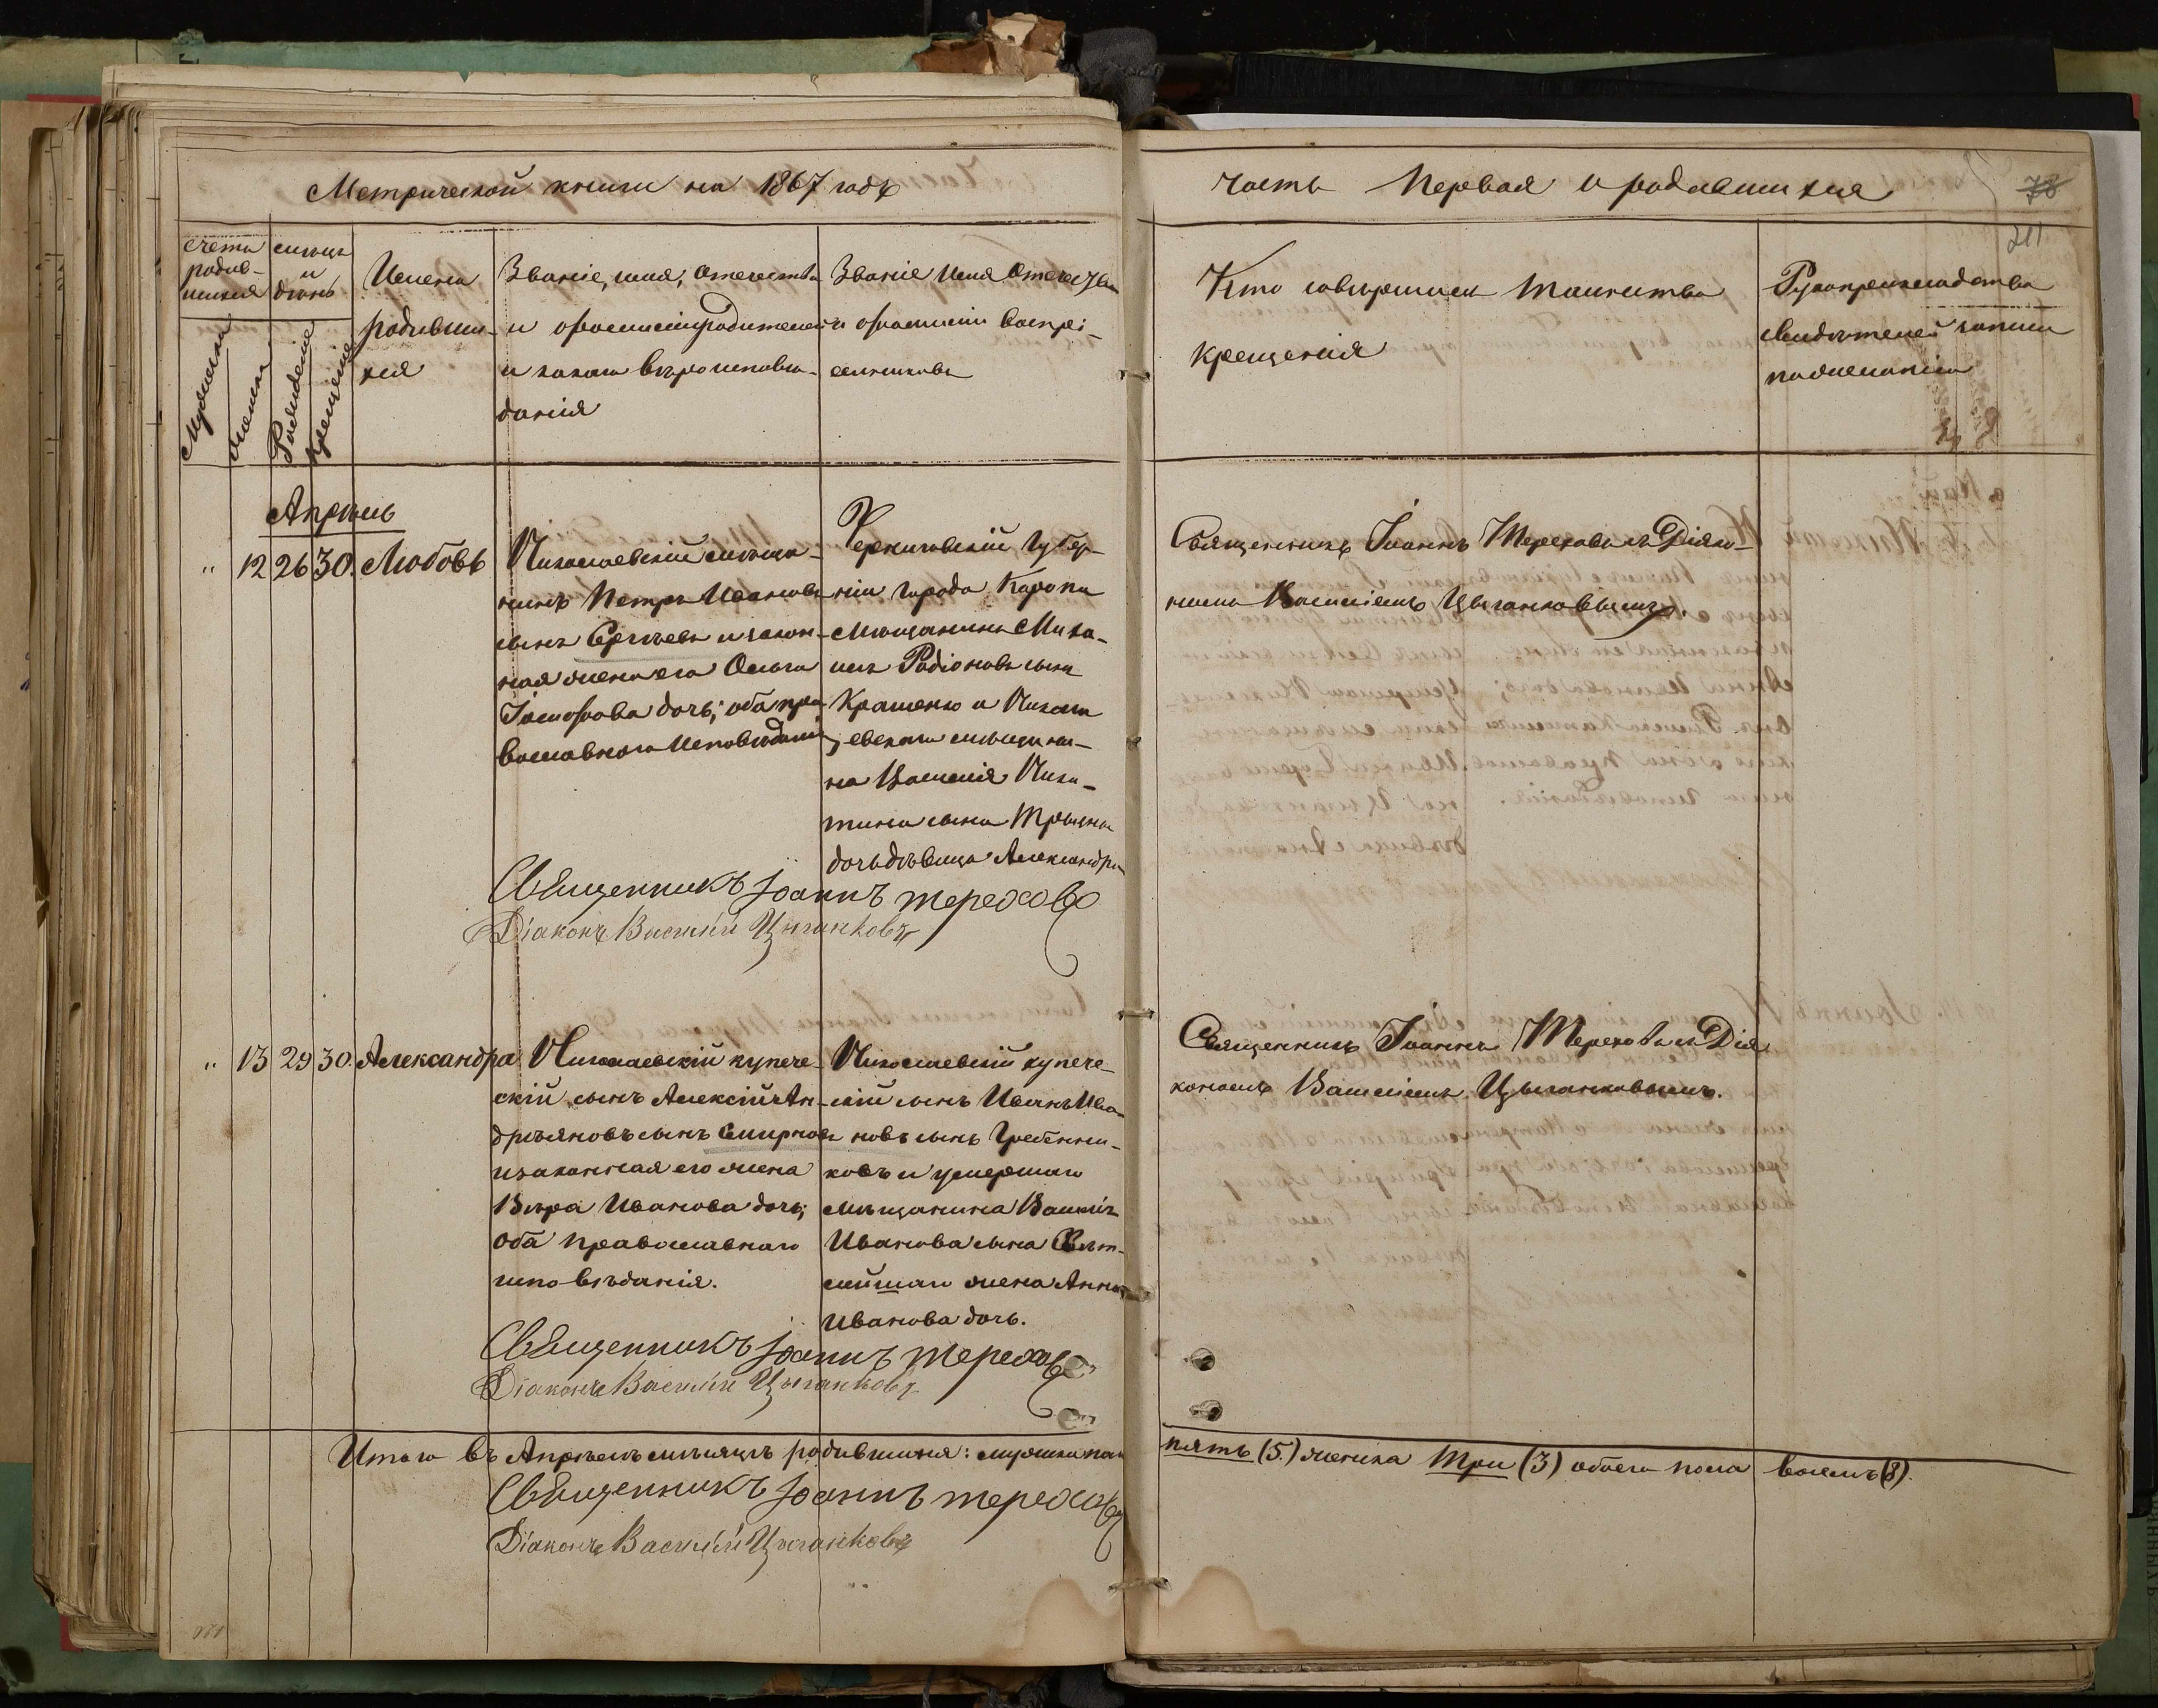 Метрической книги на 1867 годъ
часть первая о родившихся
78
211
Счетъ родив-шихся
Мужеска
Женска
мѣсяцъ и день
Рожденіе
Крещеніе
Имена
родивших-
ся
Званіе, имя, отчество
и фамилія родителей
и какого вѣроисповѣ-
данія
Званіе имя отчество
и фамилія воспрі-
емниковъ
Кто совершилъ таинство
крещенія
Рукоприкладство
свидѣтелей записи
по желанію
Апрѣль
" 12 26 30. Любовь
Николаевскій мѣща-
нинъ Петръ Ивановъ
сынъ Сергѣевъ и закон-
ная жена его Ольга
дочь; оба пра-
вославнаго исповѣданія
Черниговской Губер-
ніи города Коропа
мѣщанинъ Миха-
илъ Родіоновъ сынъ
Крашенко и Никола-
евскаго мѣщани-
на Василія Ники-
тина сына
дочь дѣвица Александра
Священникъ Іоаннъ Тереховъ съ Діако-
номъ Василіемъ Цыганковымъ.
Священникъ Іоаннъ Тереховъ
Діаконъ Василій Цыганковъ
" 13 29 30. Александра
Николаевскій купече-
скій сынъ Алексій Ан-
дреяновъ сынъ Смирновъ
и законная его жена
Вѣра Иванова дочь;
оба православнаго
исповѣданія.
Николаевскій купече-
скій сынъ Иванъ Ива-
новъ сынъ Гребенни-
ковъ и умершаго
мѣщанина Василія
Иванова сына
жена Анна
Иванова дочь.
Священникъ Іоаннъ Тереховъ съ Діа-
кономъ Василіемъ Цыганковымъ.
Священникъ Іоаннъ Тереховъ
Діаконъ Василій Цыганковъ
Итого въ Апрѣлѣ мѣсяцѣ родившихся: мужска пола пять (5.) женска три (3) обоего пола восемь (8).
Священникъ Іоаннъ Тереховъ
Діаконъ Василій Цыганковъ